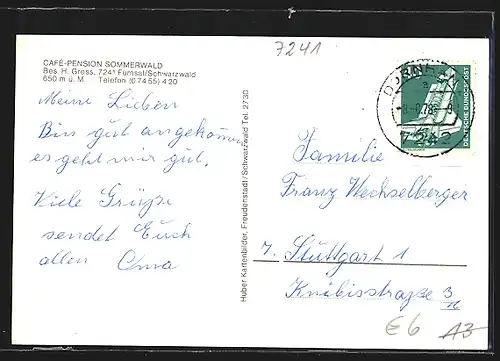 7241
CAFÉ-PENSION SOMMERWALD
Bes. H. Gress, 7241 Fürnsal/Schwarzwald
650 m ü. M. Telefon (0 74 55) 4 20
Meine Lieben
Bin gut angekommen
es geht mir gut.
Viele Grüße
sendet Euch
allen Oma
Huber Kartenbilder, Freudenstadt/Schwarzwald Tel. 2730
DEUTSCHE BUNDESPOST
7242
Familie
Franz Wechselberger
7. Stuttgart 1
Knibisstraße 3
E6 A3